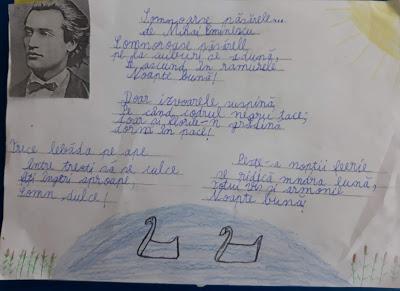 Somnoarse păsărele...
de Mihai Eminescu
Somnoroase păsărele
pe la cuiburi se adună,
Se ascund în rămurele
Noapte bună!
Doar izvoarele suspină
Pe când codrul negru tace;
Dorm și florile-n grădină
Dormi în pace!
Trece lebăda pe ape
Între trestii să se culce
Fiți îngeri aproape,
Somn dulce!
Peste-a nopții feerie
se ridică mândra lună,
Totul vis și armonie
Noapte bună!